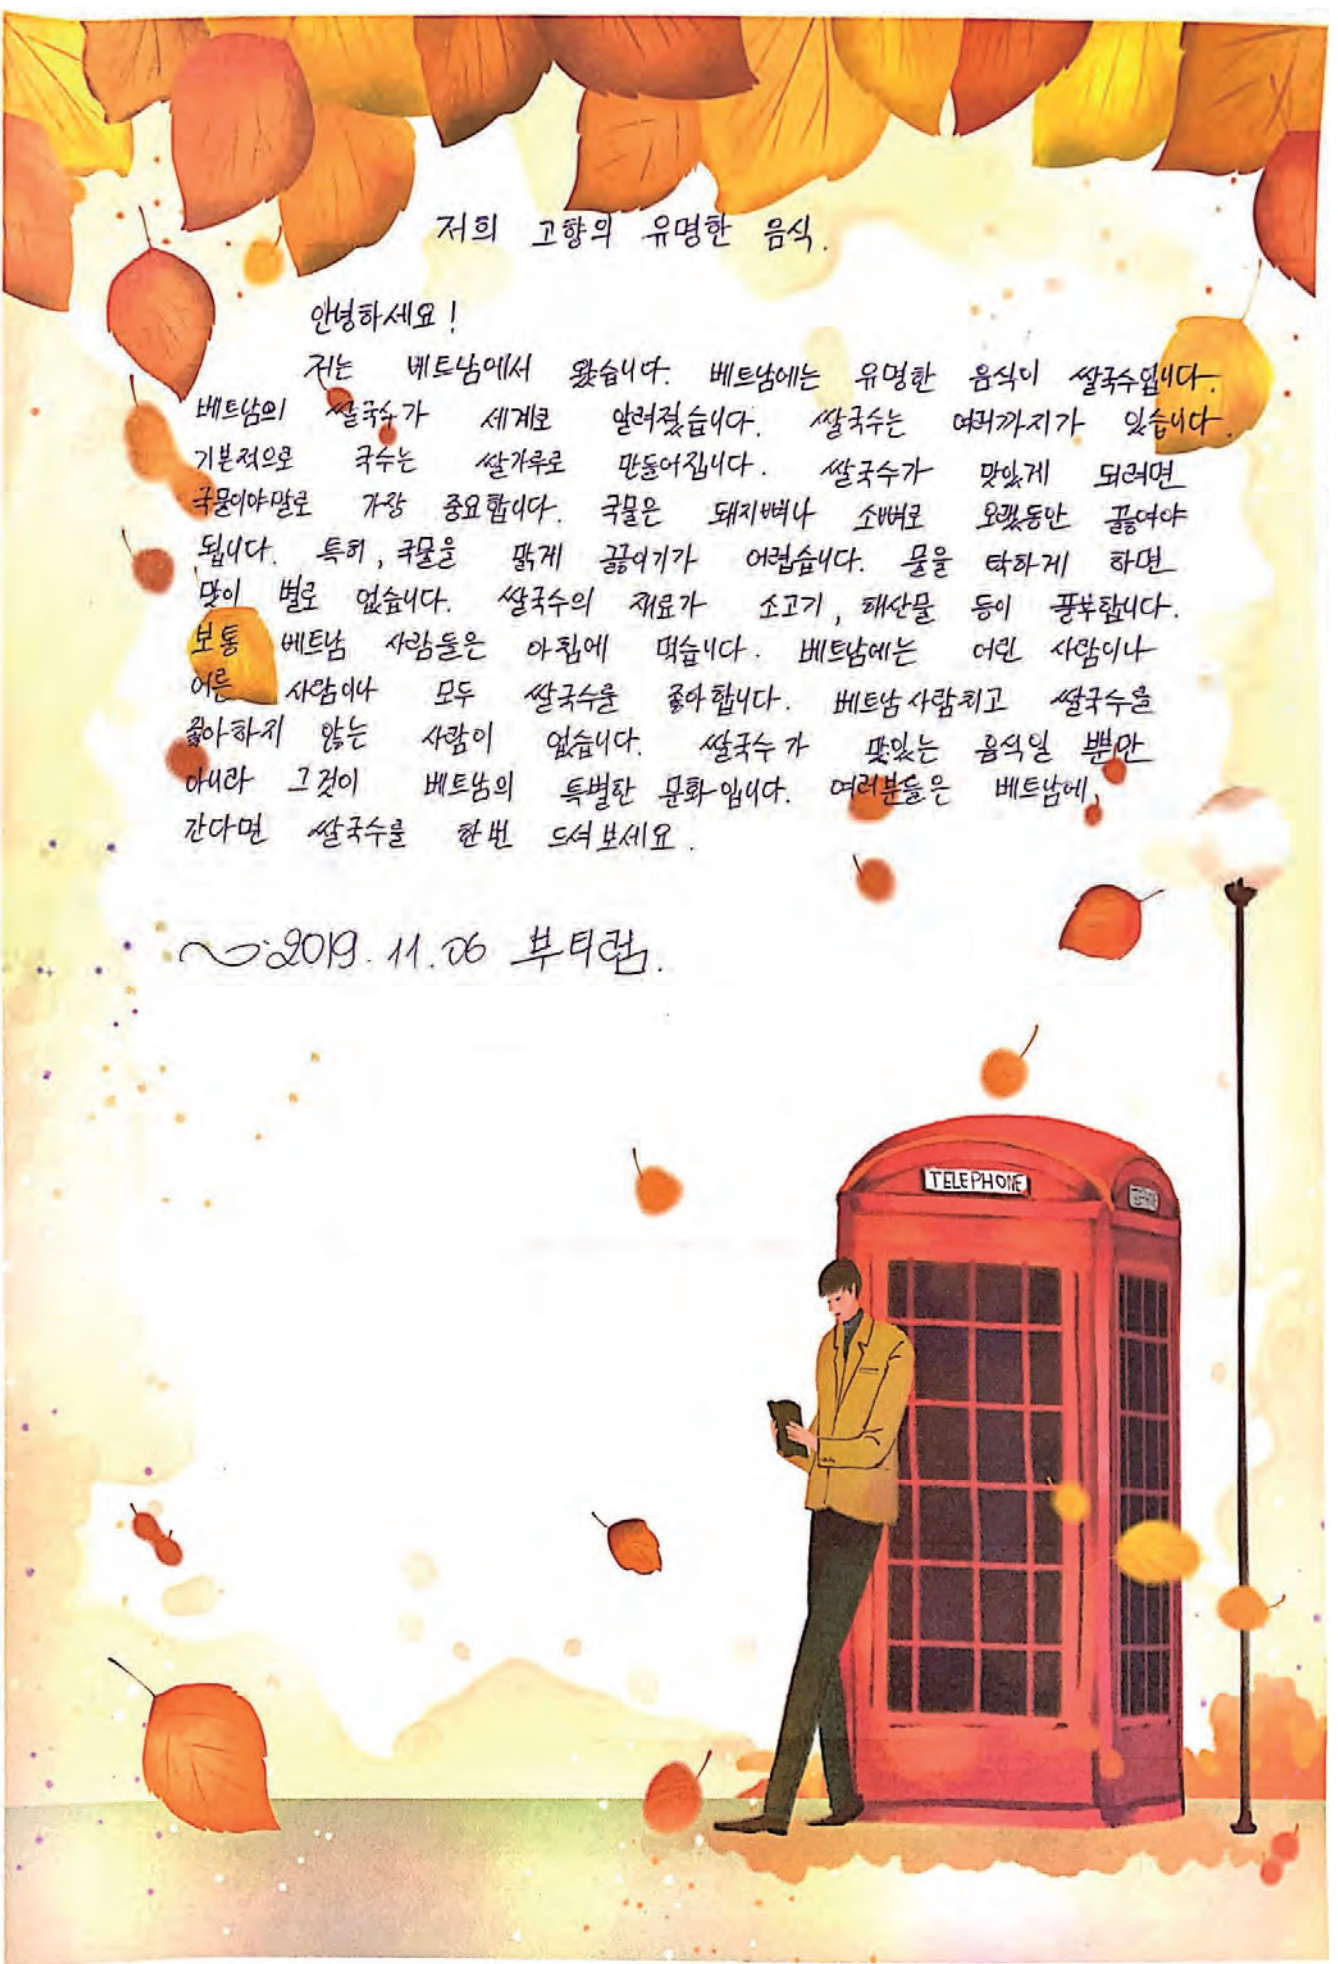 저희 고향의 유명한 음식.
안녕하세요!
저는 베트남에서 왔습니다. 베트남에는 유명한 음식이 쌀국수입니다.
베트남의 쌀국수가 세계로 알려졌습니다. 쌀국수는 여러까지가 있습니다.
기본적으로 국수는 쌀가루로 만들어집니다. 쌀국수가 맛있게 되려면
국물이야말로 가장 중요합니다. 국물은 돼지뼈나 소뼈로 오랫동안 끓여야
됩니다. 특히, 국물을 맑게 끓이기가 어렵습니다. 물을 탁하게 하면
맛이 별로 없습니다. 쌀국수의 재료가 소고기, 해산물 등이 풍부합니다.
보통 베트남 사람들은 아침에 먹습니다. 베트남에는 어린 사람이나
어른 사람이나 모두 쌀국수를 좋아합니다. 베트남 사람치고 쌀국수를
좋아하지 않는 사람이 없습니다. 쌀국수가 맛있는 음식일 뿐만
아니라 그것이 베트남의 특별한 문화입니다. 여러분들은 베트남에
간다면 쌀국수를 한번 드셔보세요.
2019.11.06 부티럼.
TELEPHONE